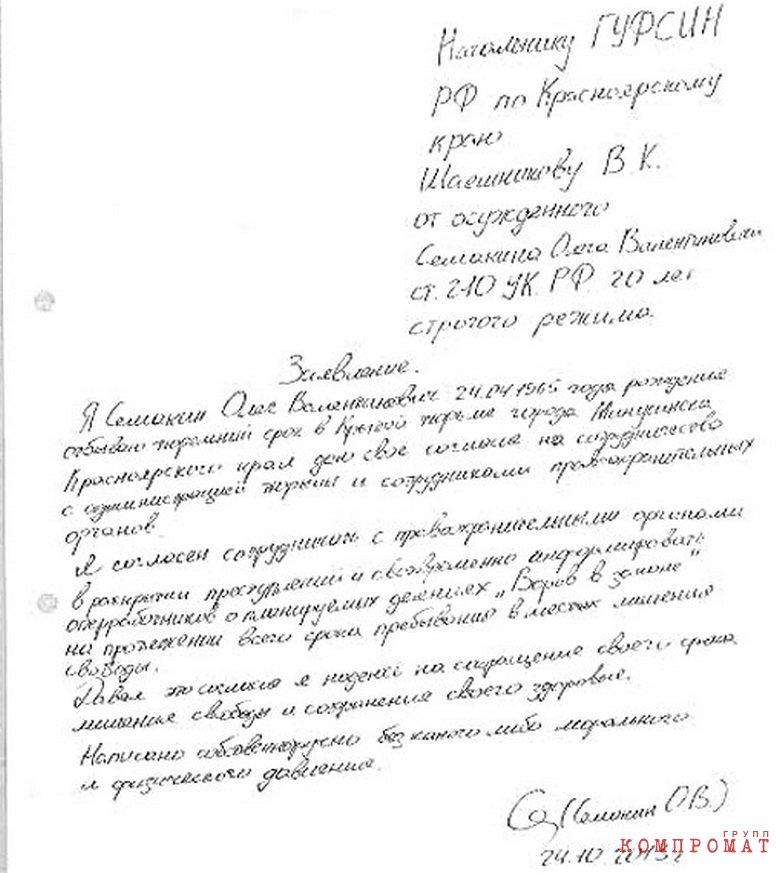 Начальнику ГУФСИН
РФ по Красноярскому
краю
Шаешникову В.К.
от осужденного
Семакина Олега Валентиновича
ст. 210 УК. РФ. 20 лет
строгого режима
Заявление.
Я Семакин Олег Валентинович 24.04.1965 года рождения
отбываю тюремный срок в Крытой тюрьме города Минусинска
Красноярского края даю своё согласие на сотрудничество
с администрацией тюрьмы и сотрудниками правоохранительных
органов.
Я согласен сотрудничать с правоохранительными органами
в раскрытии преступлений и своевременно информировать
оперработников о планируемых деяниях „Воров в законе"
на протяжении всего срока пребывания в местах лишения
свободы.
Давая это согласие я надеюсь на сокращение своего срока
лишения свободы и сохранение своего здоровье.
Написано собственноручно без какого либо морального
и физического давления.
(Семакин О.В.)
24.10.2013г
ГРУПП
КОМПРОМАТ